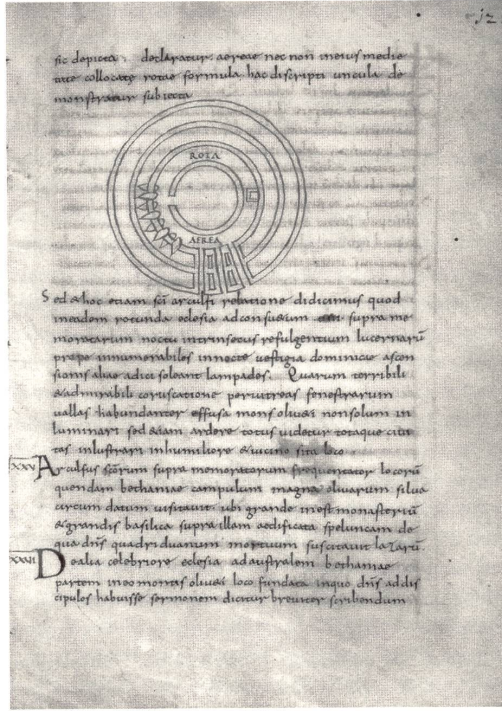 12
sic depicta declaratur aereae nec non ineius medie
tate collocate rotae formula hac discripti uncula de
monstratur subiecta
ROTA
AEREA
Sed & hoc etiam sci arculfi relatione didicimus quod
ineadem rotunda eclesia ad consuetum supra me
moratarum noctu intrinsecus refulgentium lucernarũ
prope innumerabiles innocte vestigia dominicae ascen
sionis aliae adici soleant lampades. Quarum terribili
& admirabili coruscatione per vitreas fenestrarum
vallas habundanter effusa mons oliveti non solum in
luminari sed etiam ardere totus videtur totaque civi
tas inlustrari inhumiliore & vicino sita loco
XXV Arculfus scõrum supra memoratorum frequentator locorũ
quendam bethaniae campulum magna olivarum silva
circum datum visitavit ubi grande inest monasteriũ
& grandis basilica supra illam aedificata speluncam de
qua dñs quadriduanum mortuum suscitavit lazarũ
XXVI De alia celebriore eclesia ad australem bethaniae
partem in eo montis oliveti loco fundata inquo dñs ad dis
cipulos habuisse sermonem dicitur breviter scribendum